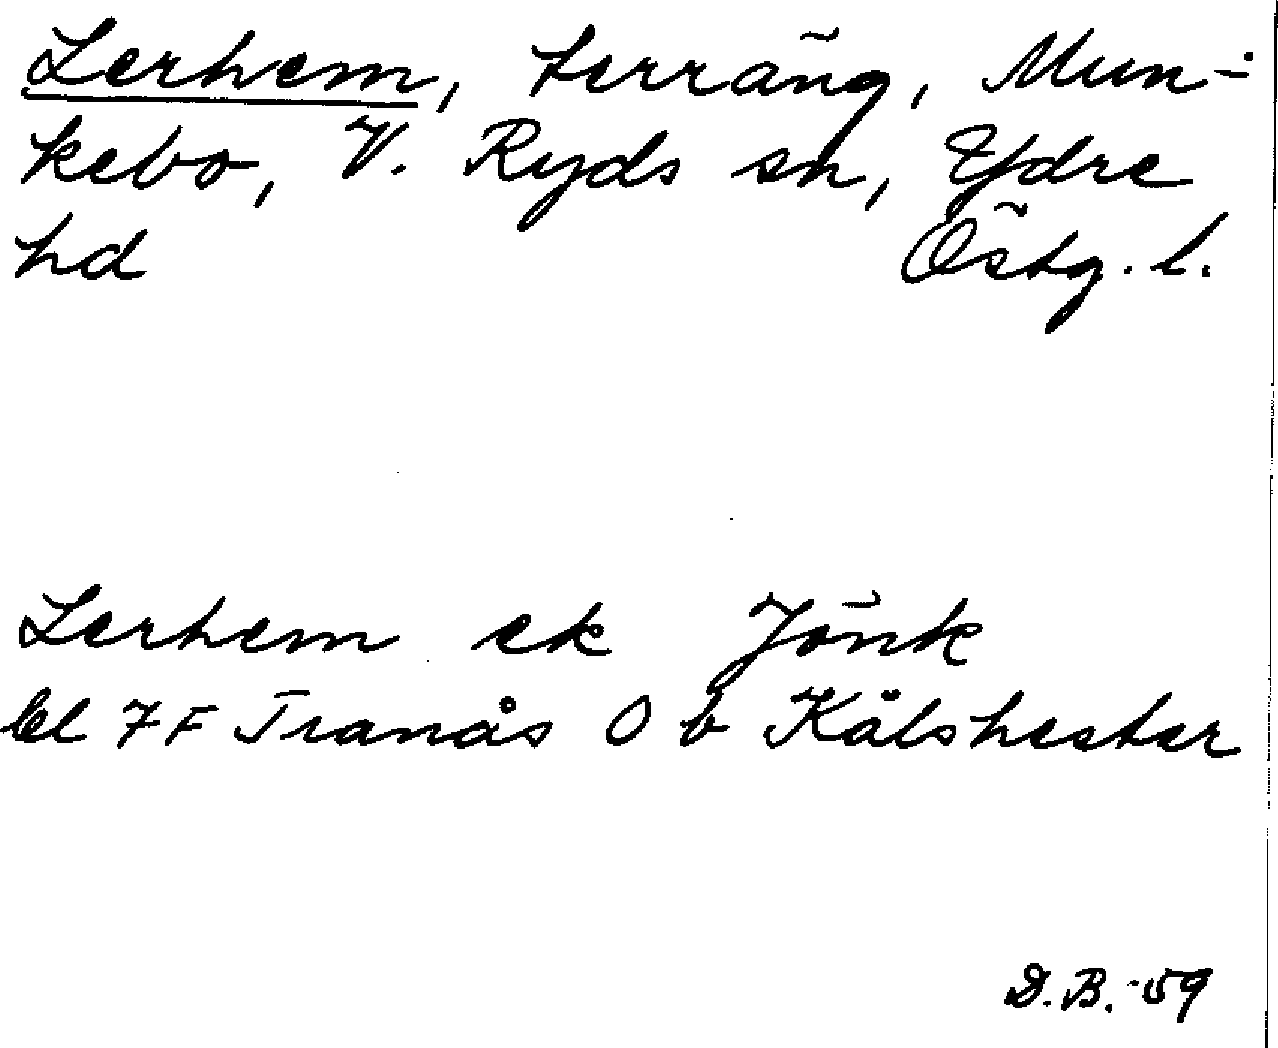 Lerhem, terräng, Mun-
kebo, V. Ryds sn, Ydre
hd Östg. l.
Lerhem ek Jönk
bl 7F Tranås O b Kålshester
D.B. -59